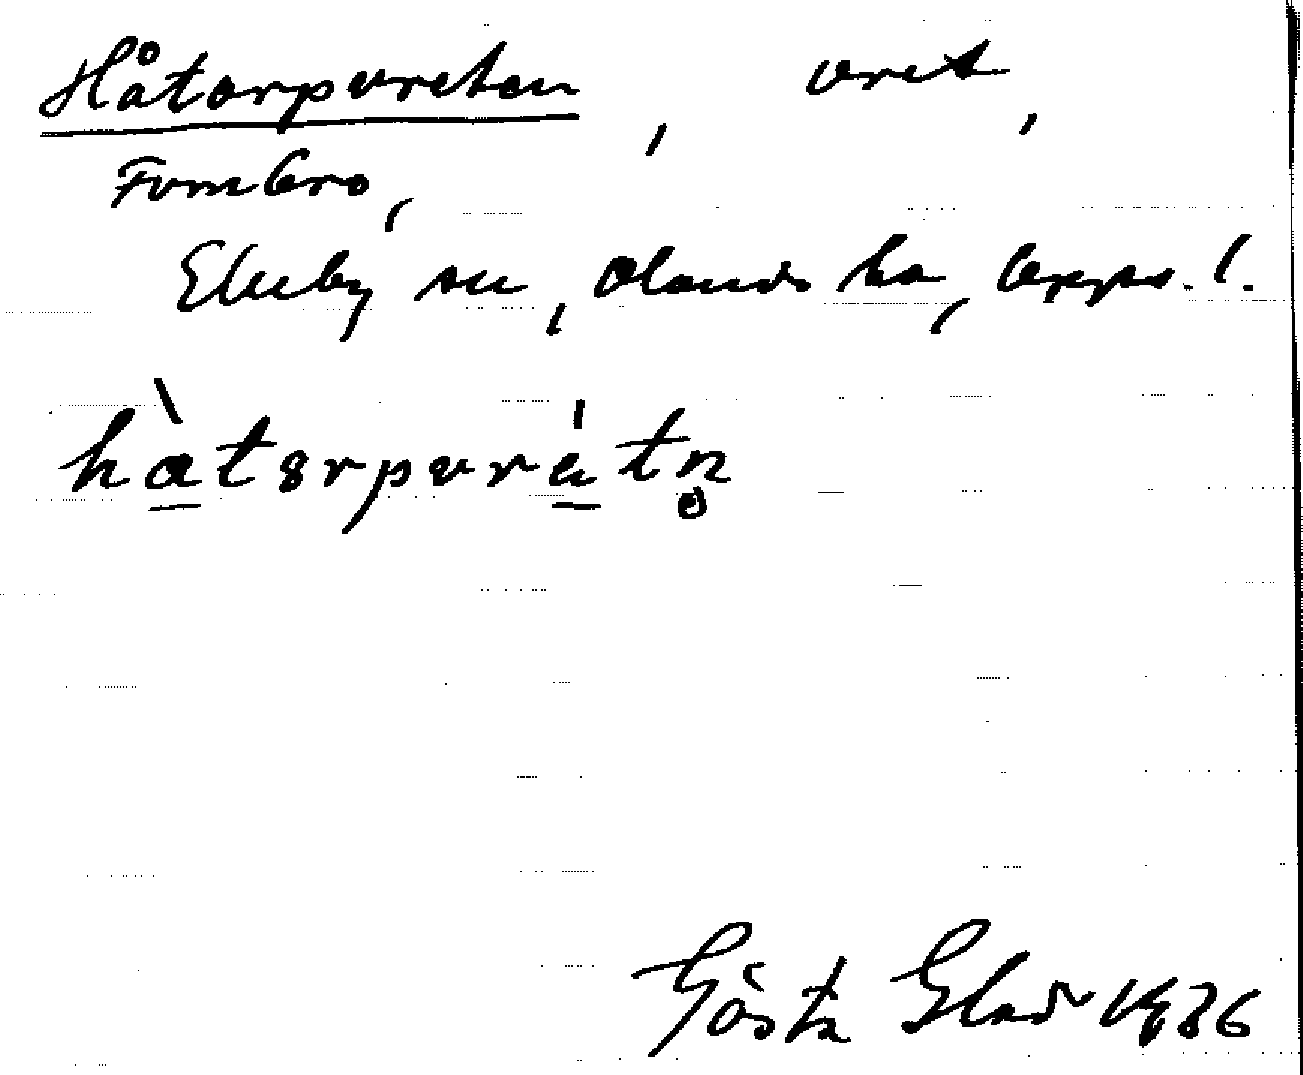 Håtorpvreten, vret,
Fombro,
Ekeby sn, Olands hd, Upps. l.
håtorpvretn
Gösta Elad 1936